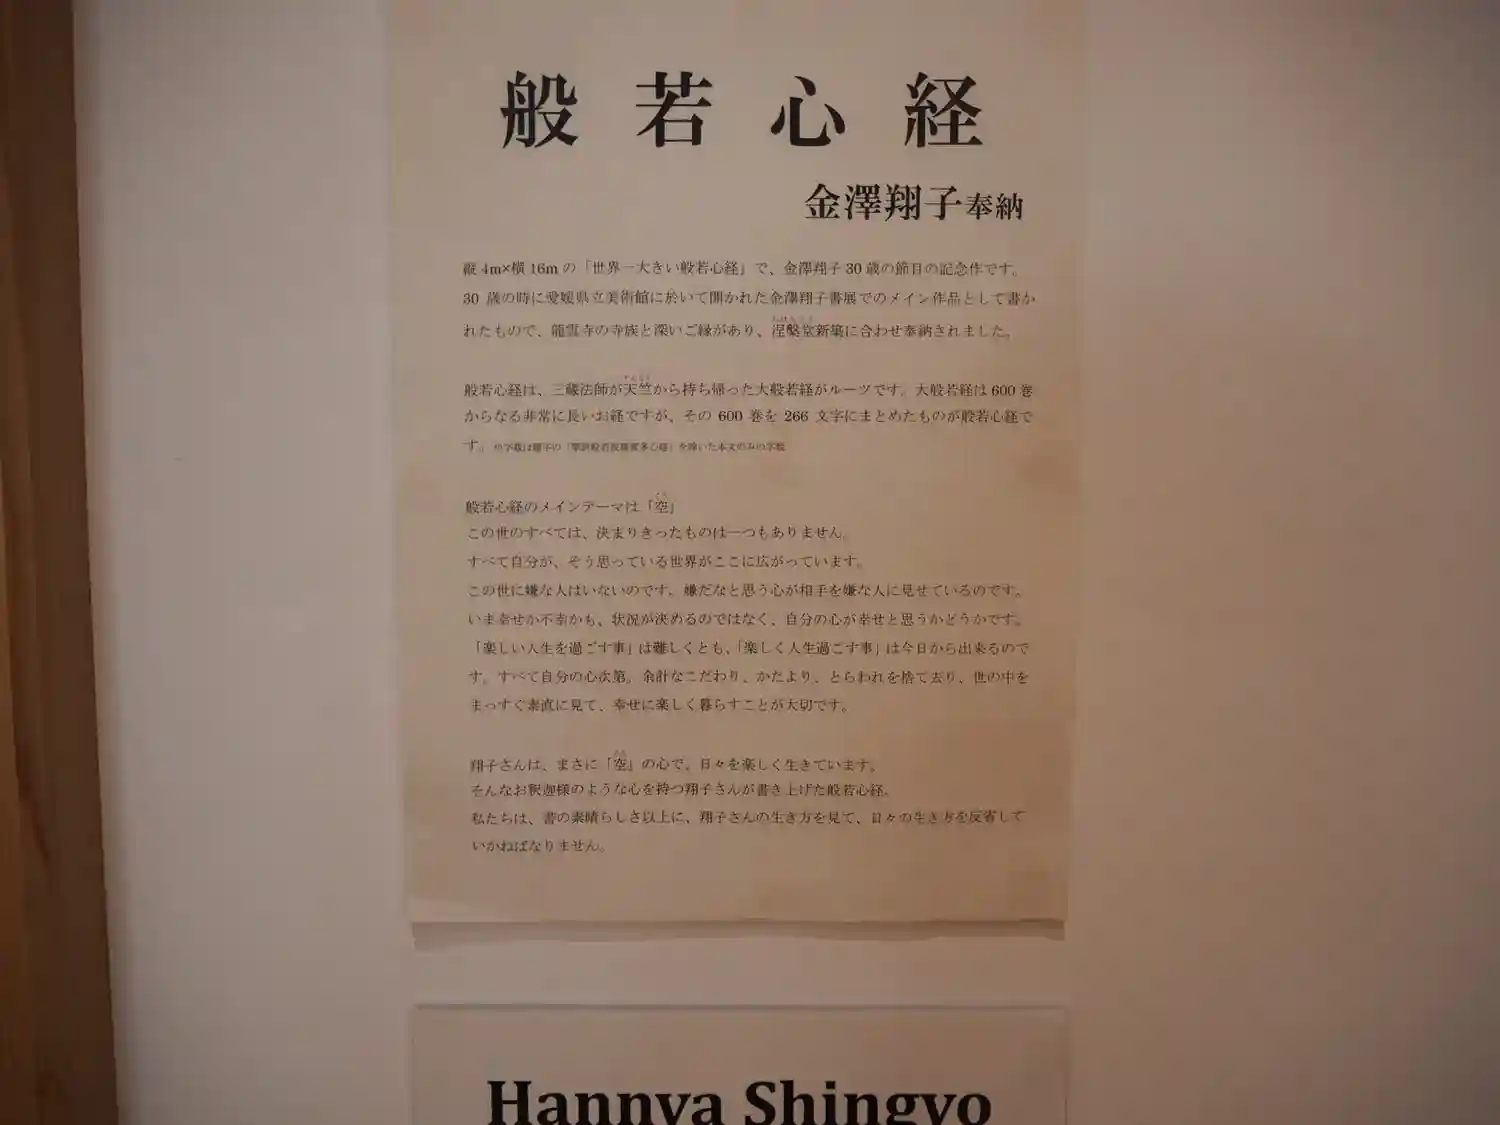 般若心経
金澤翔子奉納
縦4m×横16mの「世界一大きい般若心経」で、金澤翔子30歳の節目の記念作です。
30歳の時に愛媛県立美術館に於いて開かれた金澤翔子書展でのメイン作品として書か
れたもので、龍雲寺の寺族と深いご縁があり、涅槃堂新築に合わせ奉納されました。
般若心経は、三蔵法師が天竺から持ち帰った大般若経がルーツです。大般若経は600巻
からなる非常に長いお経ですが、その600巻を266文字にまとめたものが般若心経で
す。
般若心経のメインテーマは「空」
この世のすべては、決まりきったものは一つもありません。
すべて自分が、そう思っている世界がここに広がっています。
この世に嫌な人はいないのです。嫌だなと思う心が相手を嫌な人に見せているのです。
いま幸せか不幸かも、状況が決めるのではなく、自分の心が幸せと思うかどうかです。
「楽しい人生を過ごす事」は難しくとも、「楽しく人生過ごす事」は今日から出来るので
す。すべて自分の心次第。余計なこだわり、かたより、とらわれを捨て去り、世の中を
まっすぐ素直に見て、幸せに楽しく暮らすことが大切です。
翔子さんは、まさに「空」の心で、日々を楽しく生きています。
そんなお釈迦様のような心を持つ翔子さんが書き上げた般若心経。
私たちは、書の素晴らしさ以上に、翔子さんの生き方を見て、日々の生き方を反省して
いかねばなりません。
Hannya Shingyo